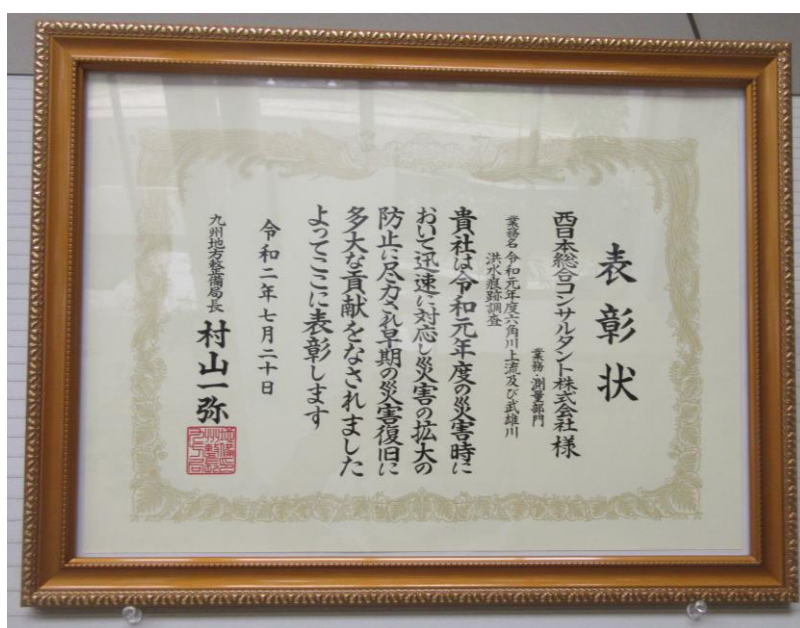 表彰状
西日本総合コンサルタント株式会社 様
業務・測量部門
業務名 令和元年度六角川上流及び武雄川
洪水痕跡調査
貴社は令和元年度の災害時に
おいて迅速に対応し災害の拡大の
防止に尽力され早期の災害復旧に
多大な貢献をなされました
よってここに表彰します
令和二年七月二十日
九州地方整備局長
村山一弥